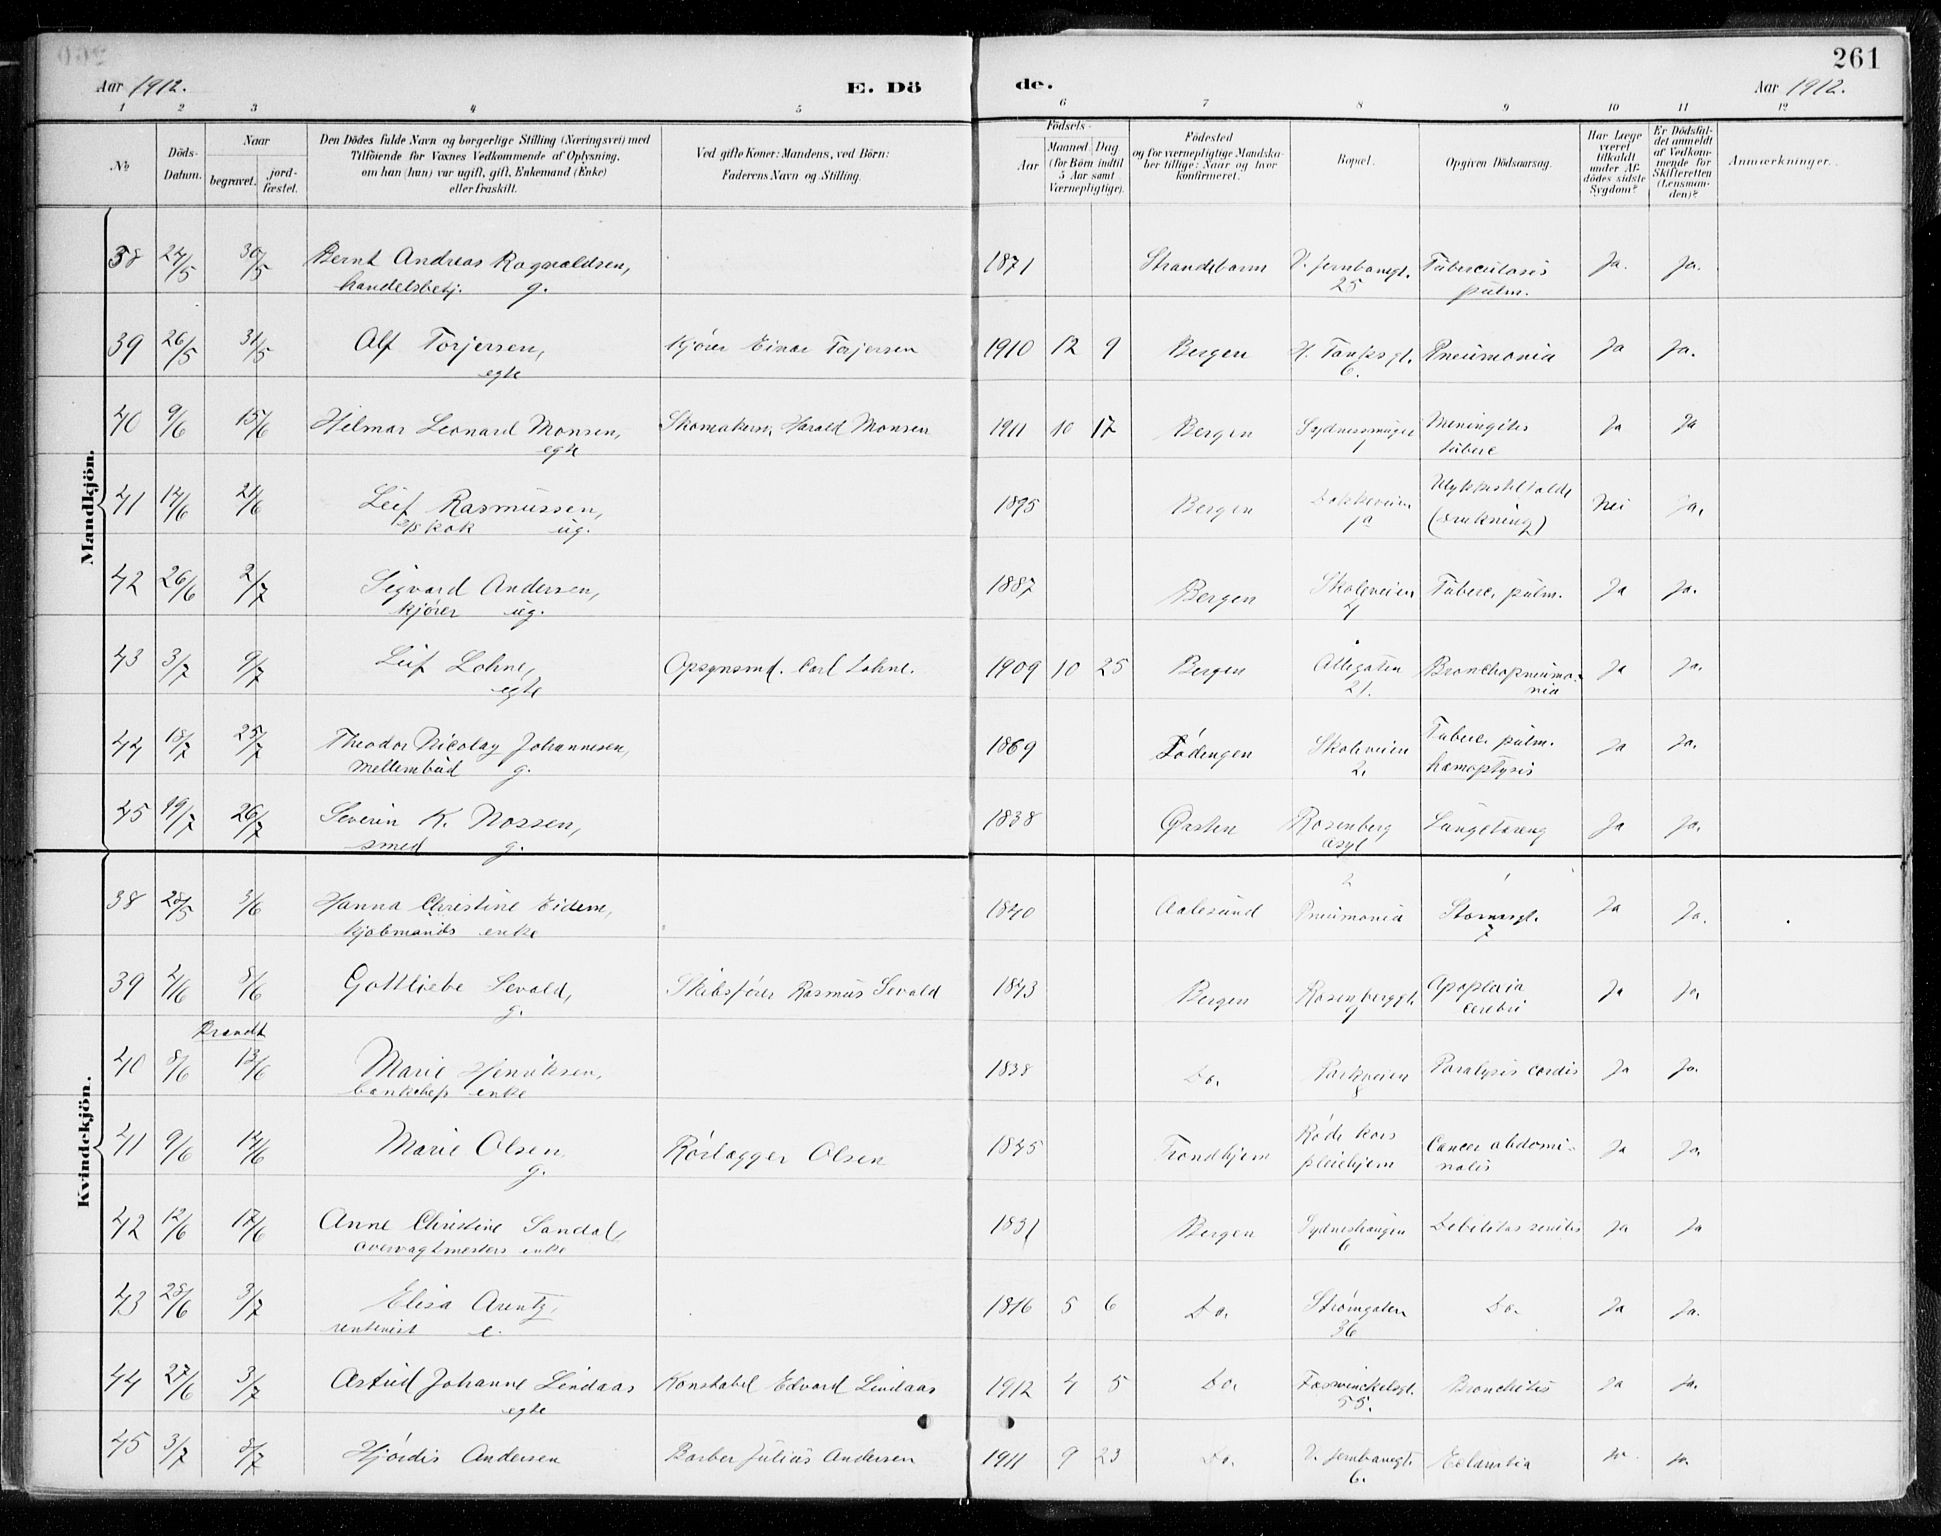 261
Aar 1912. E. Dö de. Aar 1912.
1 2 3 4 5 6 7 8 9 10 11 12
No
Döds-Datum.
Naar
begravet.
jord-fæstet.
Den Dödes fulde Navn og borgerlige Stilling (Næringsvei) med
Tilföiende for Voxnes Vedkommende af Oplysning,
om han (hun) var ugift, gift, Enkemand (Enke)
eller fraskilt.
Ved gifte Koner: Mandens, ved Börn:
Faderens Navn og Stilling.
Födsels-
Aar
Maaned Dag
(for Börn indtil
5 Aar samt
Værnepligtige).
Födested
og for værnepligtige Mandska-
ber tillige: Naar og hvor
konfirmeret.
Bopæl.
Opgiven Dödsaarsag.
Har Læge
været
tilkaldt
under Af-
dödes sidste
Sygdom?
Er Dödsfal-
det anmeldt
af Vedkom-
mende for
Skifteretten
(Lensman-
den)?
Anmærkninger.
Mandkjön.
38 24/5 30/5 Bernt Andreas Ragnvaldsen, 1871 Strandebarm V. Jernbanegt. Tuberculosis Ja. Ja.
handelsbetj. g. 25 pulm.
39 26/5 31/5 Alf Torjersen, Kjører Einar Torjersen 1910 12 9 Bergen H. Tanksgt. Pneumonia Ja Ja.
egte 6.
40 9/6 15/6 Hilmar Leonard Monsen, Skomakersv. Harald Monsen 1911 10 17 Bergen Sydnessmuget Meningitis Ja Ja
egte 1 tuberc
41 21/6 Leif Rasmussen, 1895 Bergen Dokkeveien Ulykkestilfælde Nei Ja.
kok ug. (drukning)
42 26/6 2/7 Sigvard Andersen, 1887 Bergen Skoleveien Tuberc. pulm. Ja Ja.
kjører ug. 4
43 3/7 9/7 Leif Lohne, Opsynsmd. Carl Lohne. 1909 10 25 Bergen Allegaten Bronchopneumo- Ja Ja.
egte 21. nia
44 18/7 25/7 Theodor Nicolay Johannesen, 1869 Lødingen Skoleveien Tuberc. pulm. Ja Ja.
Mellembud g. 2. hæmoptysis
45 19/7 26/7 Severin K. Nossen, 1838 Ørsten Rosenberg Ja Ja.
smed g. asyl
Kvindekjön.
38 28/5 3/6 Hanna Christine Eidem, 1840 Aalesund Pneumonia Ja Ja.
kjøbmands enke 7
39 2/6 8/6 Gottliebe Sevald, Skibsfører Rasmus Sevald 1843 Bergen Rosenberggt. Apoplexia Ja Ja.
g. 9 cerebri
Brandt
40 8/6 13/6 Marie Hinriksen, 1838 Do. Parkveien Paralysis cordis Ja Ja.
bankchefs enke 8
41 9/6 14/6 Marie Olsen Rørlægger Olsen 1845 Trondhjem Røde kors Cancer abdomi- Ja Ja.
g. pleiehjem nalis
42 12/6 17/6 Anne Christine Sandal, 1831 Bergen Sydneshaugen Debilitas senilis Ja Ja
overvagtmesters enke 6
43 28/6 3/7 Elisa Arentz, 1816 5 6 Do. Strømgaten Do. Ja Ja.
e. 36
44 27/6 3/7 Astrid Johanne Lindaas Konstabel Edvard Lindaas 1912 4 5 Do. Fosswinckelsgt. Bronchitis Ja Ja.
egte 55.
45 3/7 8/7 Hjørdis Andersen Barber Julius Andersen 1911 9 23 Do. V. Jernbanegt. Eclampsia Ja Ja.
6.